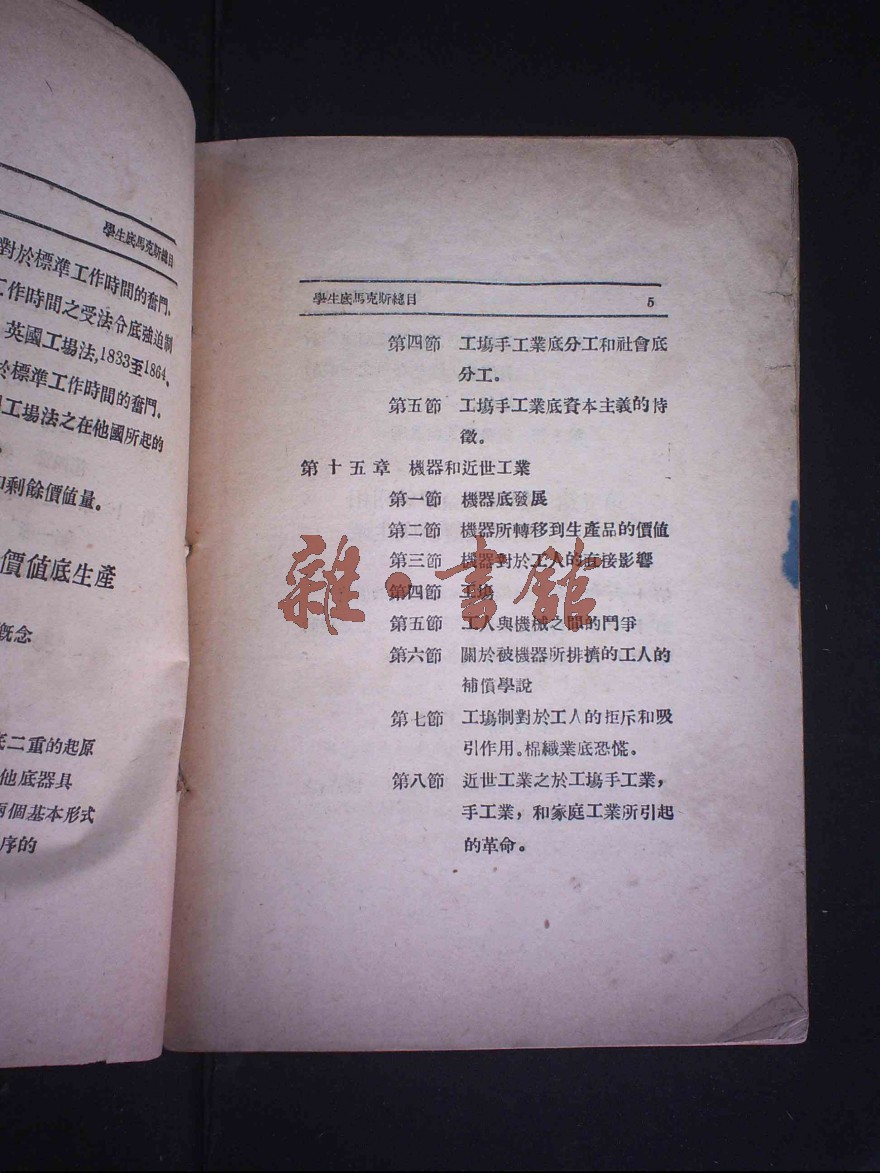 學生底馬克斯總目
對於標準工作時間的奮鬥。
工作時間之受法令底強迫制
英國工場法,1833至1864、
於標準工作時間的奮鬥。
工場法之在他國所起的
和剩餘價值量。
價值底生產
概念
底二重的起原
他底器具
兩個基本形式
序的
學生底馬克斯總目 5
第四節 工塲手工業底分工和社會底
分工。
第五節 工塲手工業底資本主義的特
徵。
第十五章 機器和近世工業
第一節 機器底發展
第二節 機器所轉移到生產品的價值
第三節 機器對於工人的直接影響
第四節 工塲
第五節 工人與機械之間的鬥爭
第六節 關於被機器所排擠的工人的
補償學說
第七節 工塲制對於工人的拒斥和吸
引作用。棉織業底恐慌。
第八節 近世工業之於工塲手工業,
手工業,和家庭工業所引起
的革命。
雜·書館